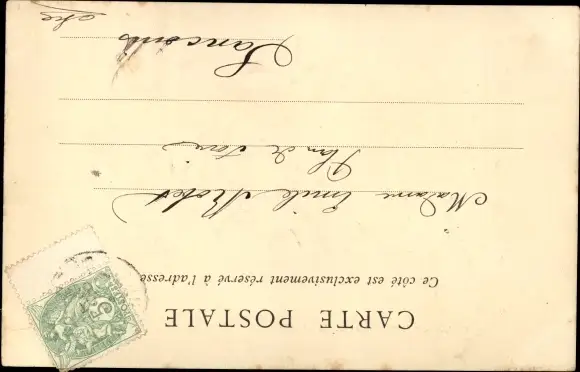 CARTE POSTALE
Ce côté est exclusivement réservé à l'adresse
Madame Emile Robert
de
Sancoins
Cher
5